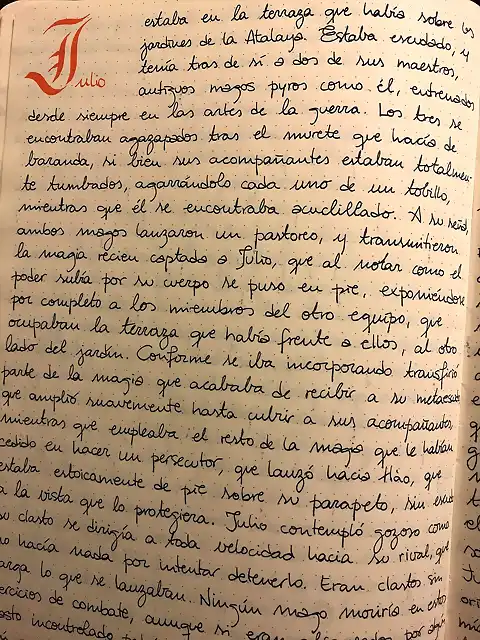 Julio
estaba en la terraza que había sobre los
jardines de la Atalaya. Estaba escudado, y
tenía tras de sí a dos de sus maestros,
antiguos magos pyros como él, entrenados
desde siempre en las artes de la guerra. Los tres se
encontraban agazapados tras el murete que hacía de
baranda, si bien sus acompañantes estaban totalmen-
te tumbados, agarrándolo cada uno de un tobillo,
mientras que él se encontraba acuclillado. A su señal,
ambos magos lanzaron un pastoreo, y transmitieron
la magia recien captada a Julio, que al notar como el
poder subía por su cuerpo se puso en pie, exponiéndose
por completo a los miembros del otro equipo, que
ocupaban la terraza que había frente a ellos, al otro
lado del jardín. Conforme se iba incorporando transfirió
parte de la magia que acababa de recibir a su metaescudo
que amplió suavemente hasta cubrir a sus acompañantes,
mientras que empleaba el resto de la magia que le habían
cedido en hacer un persecutor, que lanzó hacia Ilão, que
estaba estoicamente de pie sobre su parapeto, sin escudo
a la vista que lo protegiera. Julio contempló gozoso como
su clasto se dirigía a toda velocidad hacia su rival, que
no hacía nada por intentar detenerlo. Eran clastos sin
carga lo que se lanzaban. Ningún mago moriría en estos
ejercicios de combate, aunque si eran por algún
incontrolado